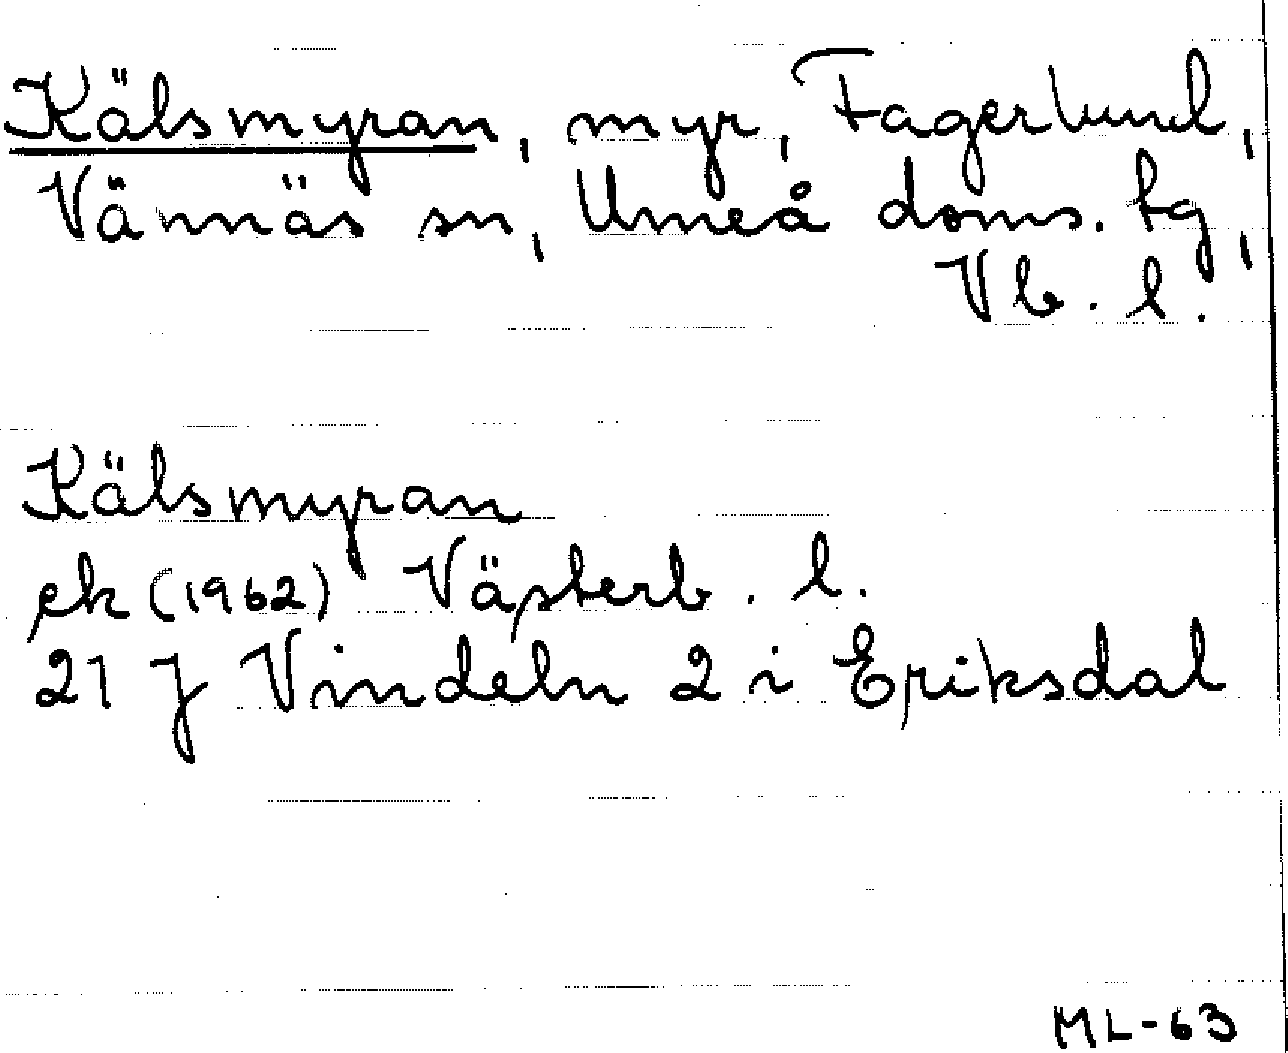 Kälsmyran, myr, Fagerlund,
Vännäs sn, Umeå doms. tg,
Vb. l.
Kälsmyran
ek (1962) Västerb. l.
21 J Vindeln 2 i Eriksdal
ML-63